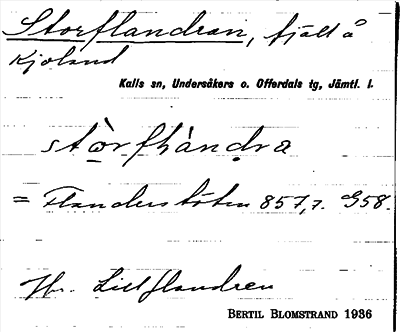 Storflandran, fjäll å
Kjoland
Kalls sn, Undersåkers o. Offerdals tg, Jämtl. l.
stòrfḷàndra
= Flanderstöten 857,7. G58.
Jfr. Lillflandren
BERTIL BLOMSTRAND 1936